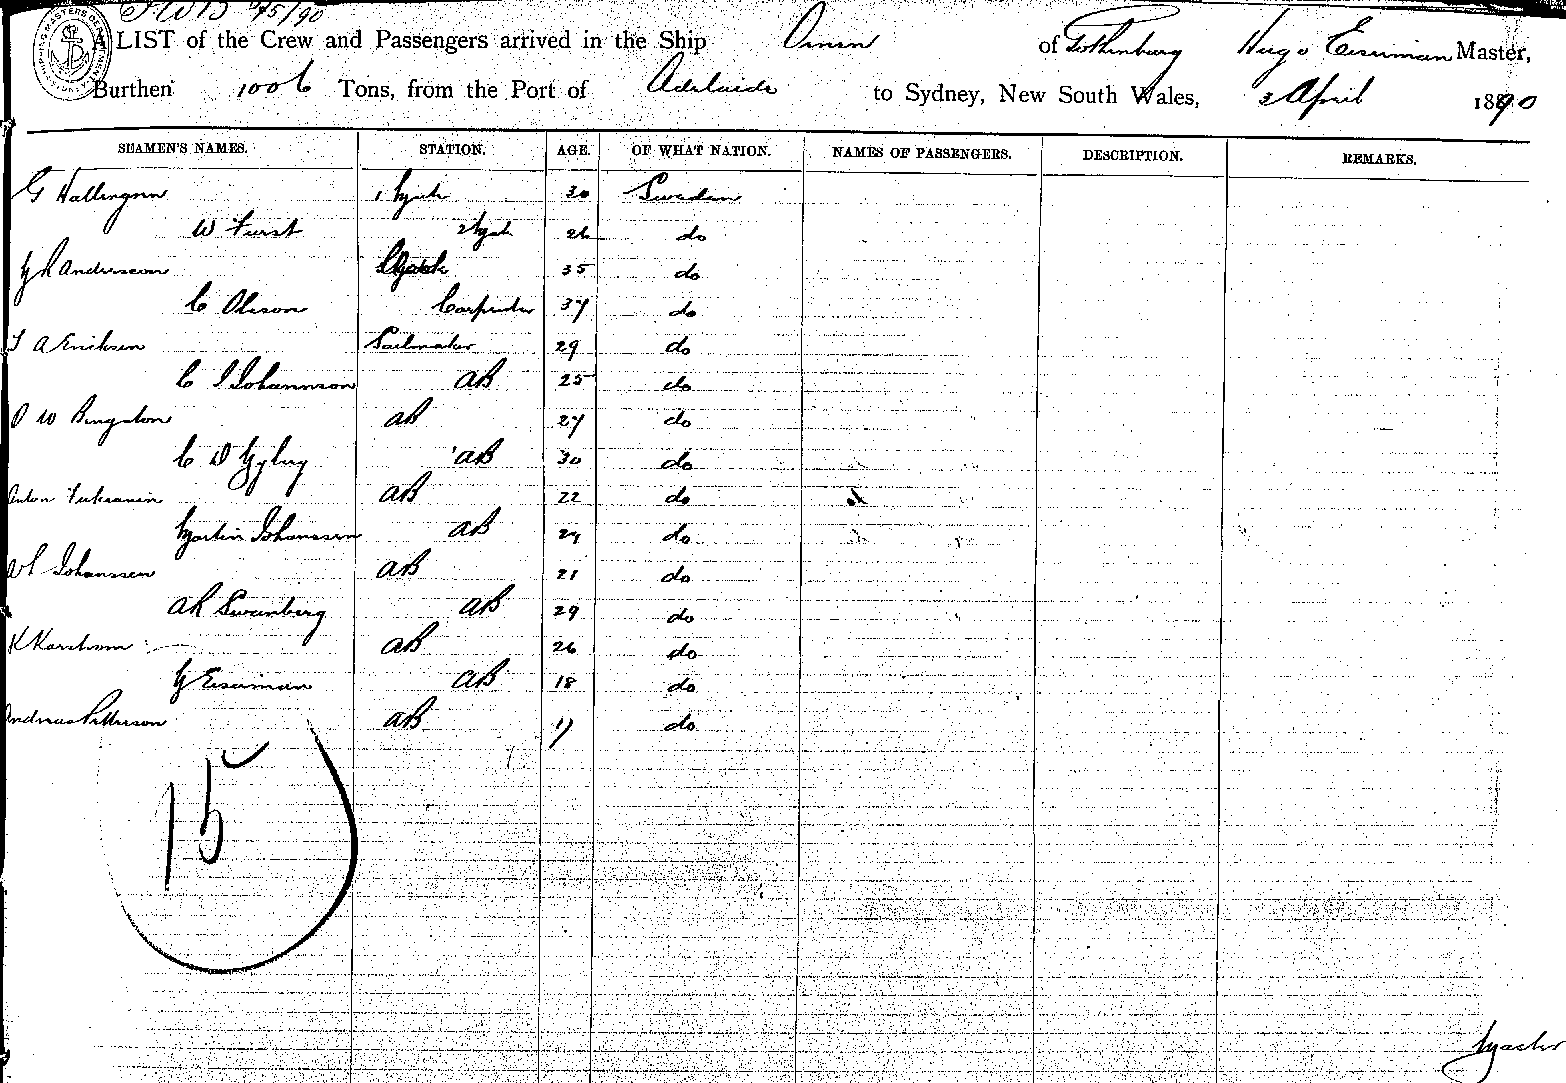 75/90
LIST of the Crew and Passengers arrived in the Ship Omen of Gothenburg Hugo Eisenman Master,
Burthen 1006 Tons, from the Port of Adelaide to Sydney, New South Wales, 2 April 1890
SEAMEN'S NAMES. STATION. AGE. OF WHAT NATION. NAMES OF PASSENGERS. DESCRIPTION. REMARKS.
G Hallengren 1 Mate 30 Sweden
W Furst 2 Mate 26 do
Anderson 35 do
C Olsson Carpenter 37 do
A Eriksen Sailmaker 29 do
C J Johannson AB 25 do
O W Bengston AB 27 do
C D AB 30 do
Anton AB 22 do
Martin Johanssen AB 24 do
Johanssen AB 21 do
A R Swanberg AB 29 do
K AB 26 do
Eisenman AB 18 do
Andreas Petterson AB 17 do
15
Master